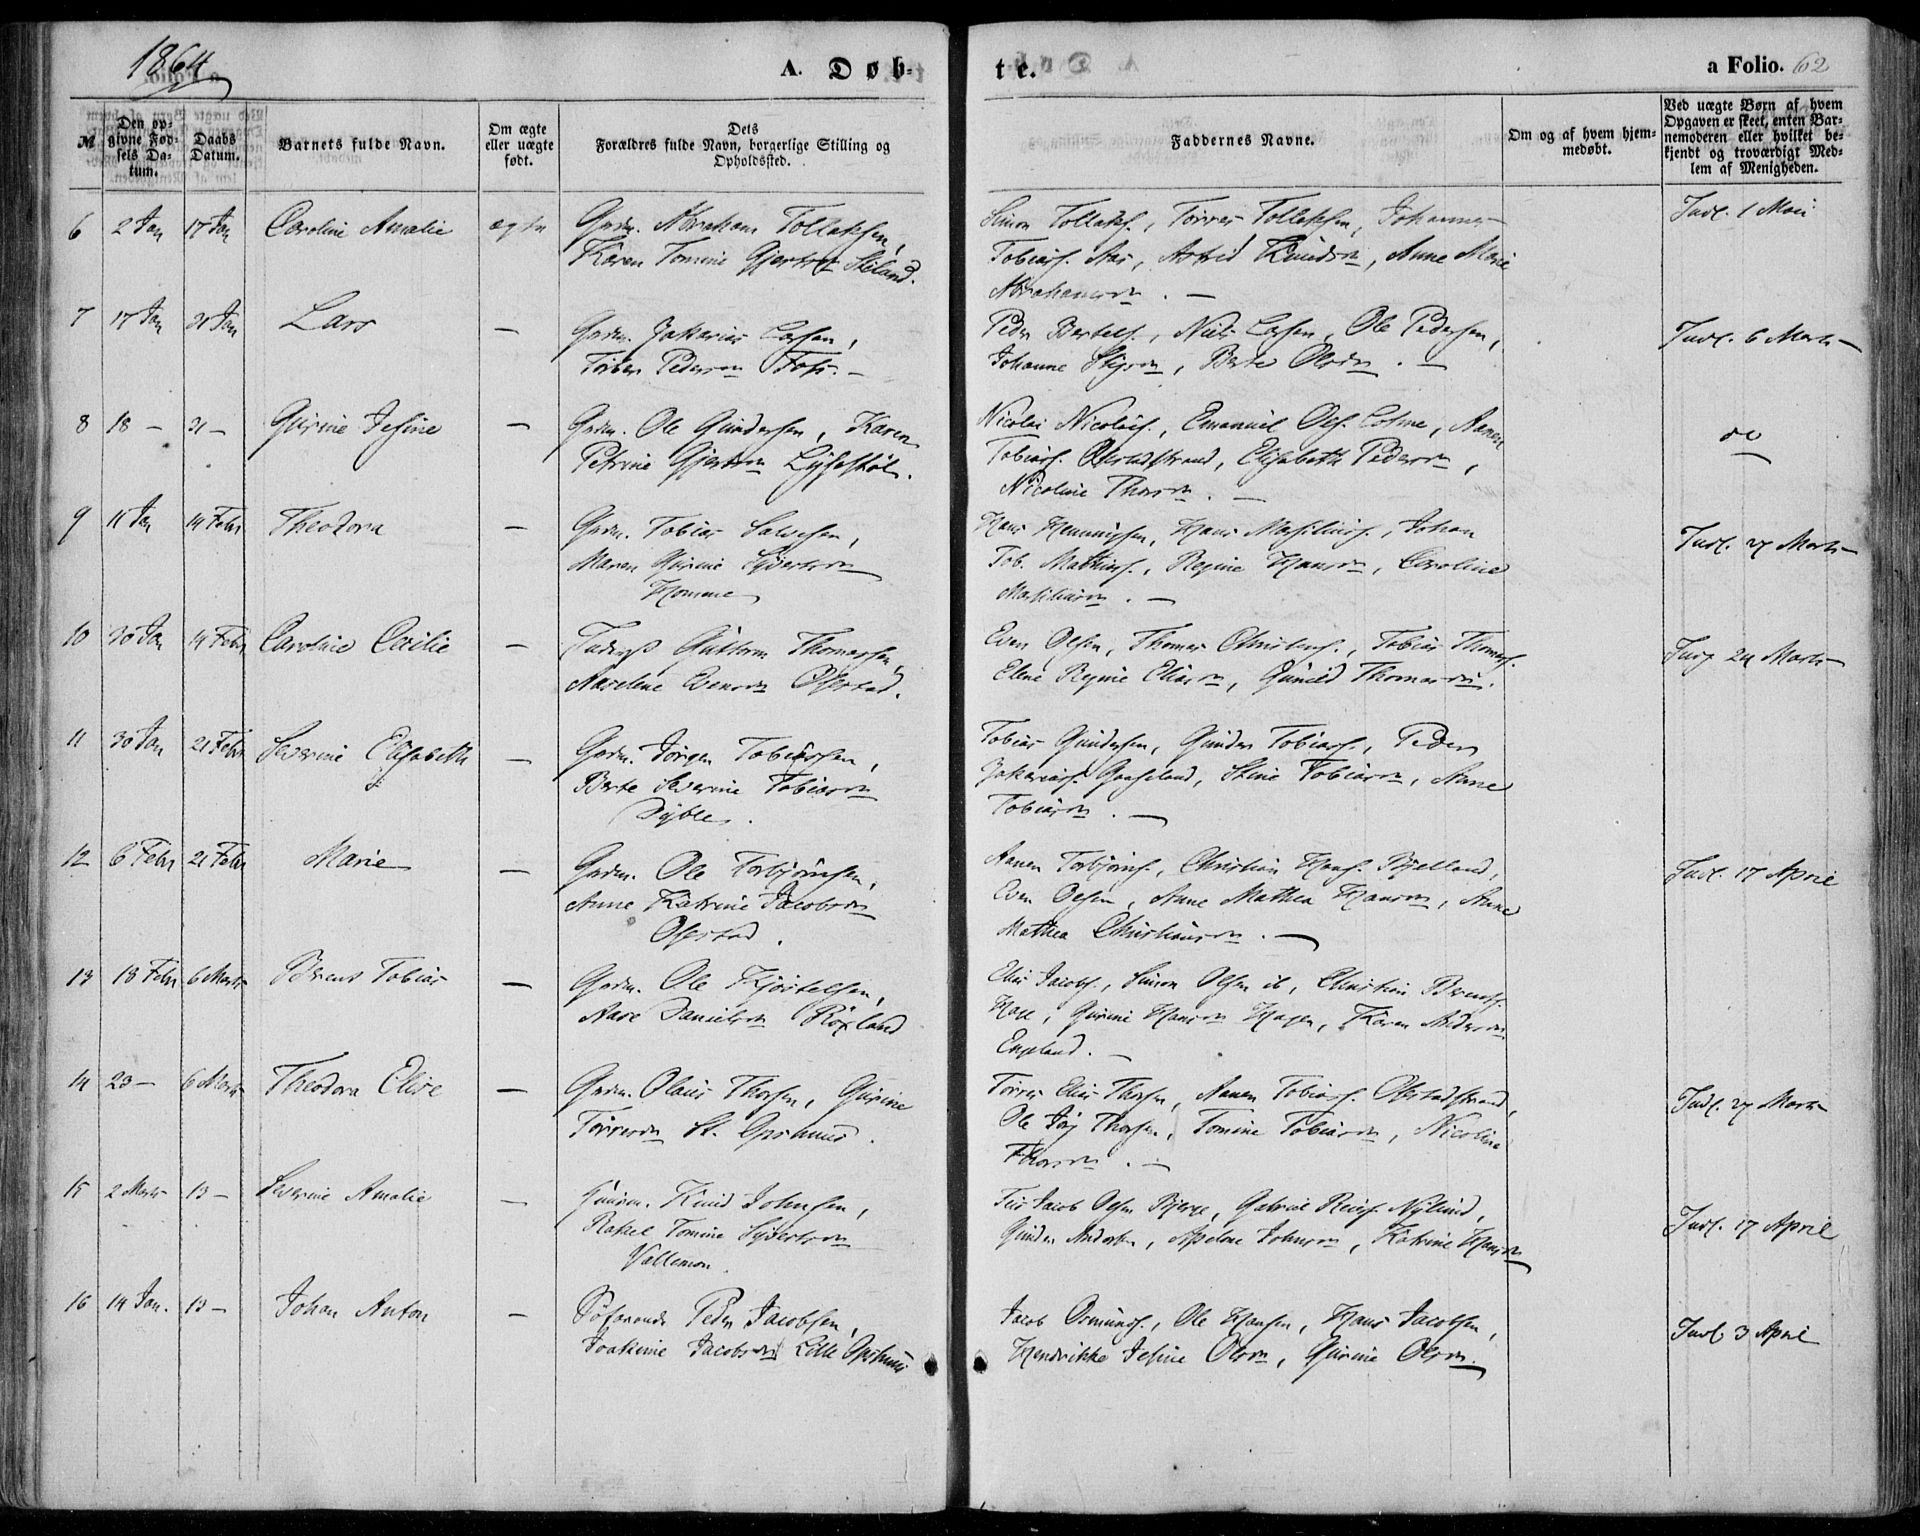 1864
A. Døb-
te.
a Folio. 62
№
Den op-
givne Fød-
sels Da-
tum.
Daabs
Datum.
Barnets fulde Navn.
Om ægte
eller uægte
født.
Dets
Forældres fulde Navn, borgerlige Stilling og
Opholdssted.
Faddernes Navne.
Om og af hvem hjem-
medøbt.
Ved uægte Børn af hvem
Opgaven er skeet, enten Bar-
nemoderen eller hvilket be-
kjendt og troværdigt Med-
lem af Menigheden.
6 2 Jan 17 Jan Caroline Amalie ægte Grdm. Abraham Tollaksen,
Karen Tomine Gjertsdr Skeland.
Simon Tollaks., Torres Tollaksen, Johannes
Tobias. Aas, Astrid Knudsdr, Anne Marie
Abrahamsdr. —
Indl. 1 Mai
7 17 Jan 31 Jan Lars — Grdm. Zakarias Larsen,
Torber Pedersdr Foss. —
Peder Bertels., Niels Larsen, Ole Pedersen,
Johanne Stigsdr, Berte Olsdr. —
Indl. 6 Marts
8 18 — 31 — Gurine Jesine — Grdm. Ole Gundersen, Karen
Petrine Gjertsdr Lyseskøl.
Nicolai Nicolais., Emanuel Ols. Holme, Aanen
Tobias. Obrestadstrand, Elisabeth Pedersdr,
Nicoline Thorsdr. —
do
9 11 Jan 14 Febr Theodora — Grdm. Tobias Salvesen,
Maren Gurine Syvertsdr
Homme
Hans Henningsen, Hans Maselius., Johan
Tob. Mathias., Regine Hansdr, Caroline
Maseliusdr. —
Indl. 27 Marts
10 30 Jan 14 Febr Caroline Cecilie — Guttorm Thomassen,
Aaselene Evensdr Ofestad.
Even Olsen, Thomas Christens., Tobias Thomas.
Elene Regine Eliasdr, Gunild Thomasdr.
Indl 24 Marts
11 30 Jan 21 Febr Severine Elisabeth — Grdm. Jørgen Tobiassen,
Berte Severine Tobiasdr
Dyble.
Tobias Gundersen, Gunder Tobias., Peder
Zakarias. Gaaseland, Stine Tobiasdr, Anne
Tobiasdr. —
12 6 Febr 21 Febr Marie — Grdm. Ole Torbjørnsen,
Anne Katrine Jacobsdr
Ofestad.
Aanen Torbjørns., Christian Hans. Bjelland,
Even Olsen, Anne Mathea Hansdr, Anne
Mathea Christiansdr. —
Indl. 17 April
13 18 Febr 6 Marts Berent Tobias — Grdm. Ole Kjøstelsen,
Aase Danielsdr Røxland
Elias Jacobs., Simon Olsen ib, Christian Berents.
Hage, Gurine Hansdr Hagen, Karen Andersdr
Engeland. —
14 23 — 6 Marts Theodora Elise — Grdm. Olaus Thorsen, Gurine
Torresdr St. Opshuus.
Torres Elias Thorsen, Aanen Tobias. Obrestadstrand,
Ole Jørg Thorsen, Tomine Tobiasdr, Nicoline
Thorsdr. —
Indl. 27 Marts
15 2 Marts 13 — Severine Amalie — Knud Johnsen,
Rakel Tomine Syvertsdr
Vallemon.
Jacob Olsen Bjerge, Gabriel Reiers. Nylund,
Gunder Anders., Apelone Johnsdr, Katrine Hansdr
Indl. 17 April
16 14 Jan. 13 — Johan Anton — Søfarende Peder Jacobsen,
Joakime Jacobsdr Lille Opshuus
Jacob Osmunds., Ole Hansen, Hans Jacobsen,
Hendrikke Jesine Olsdr, Gurine Olsdr.
Indl 3 April